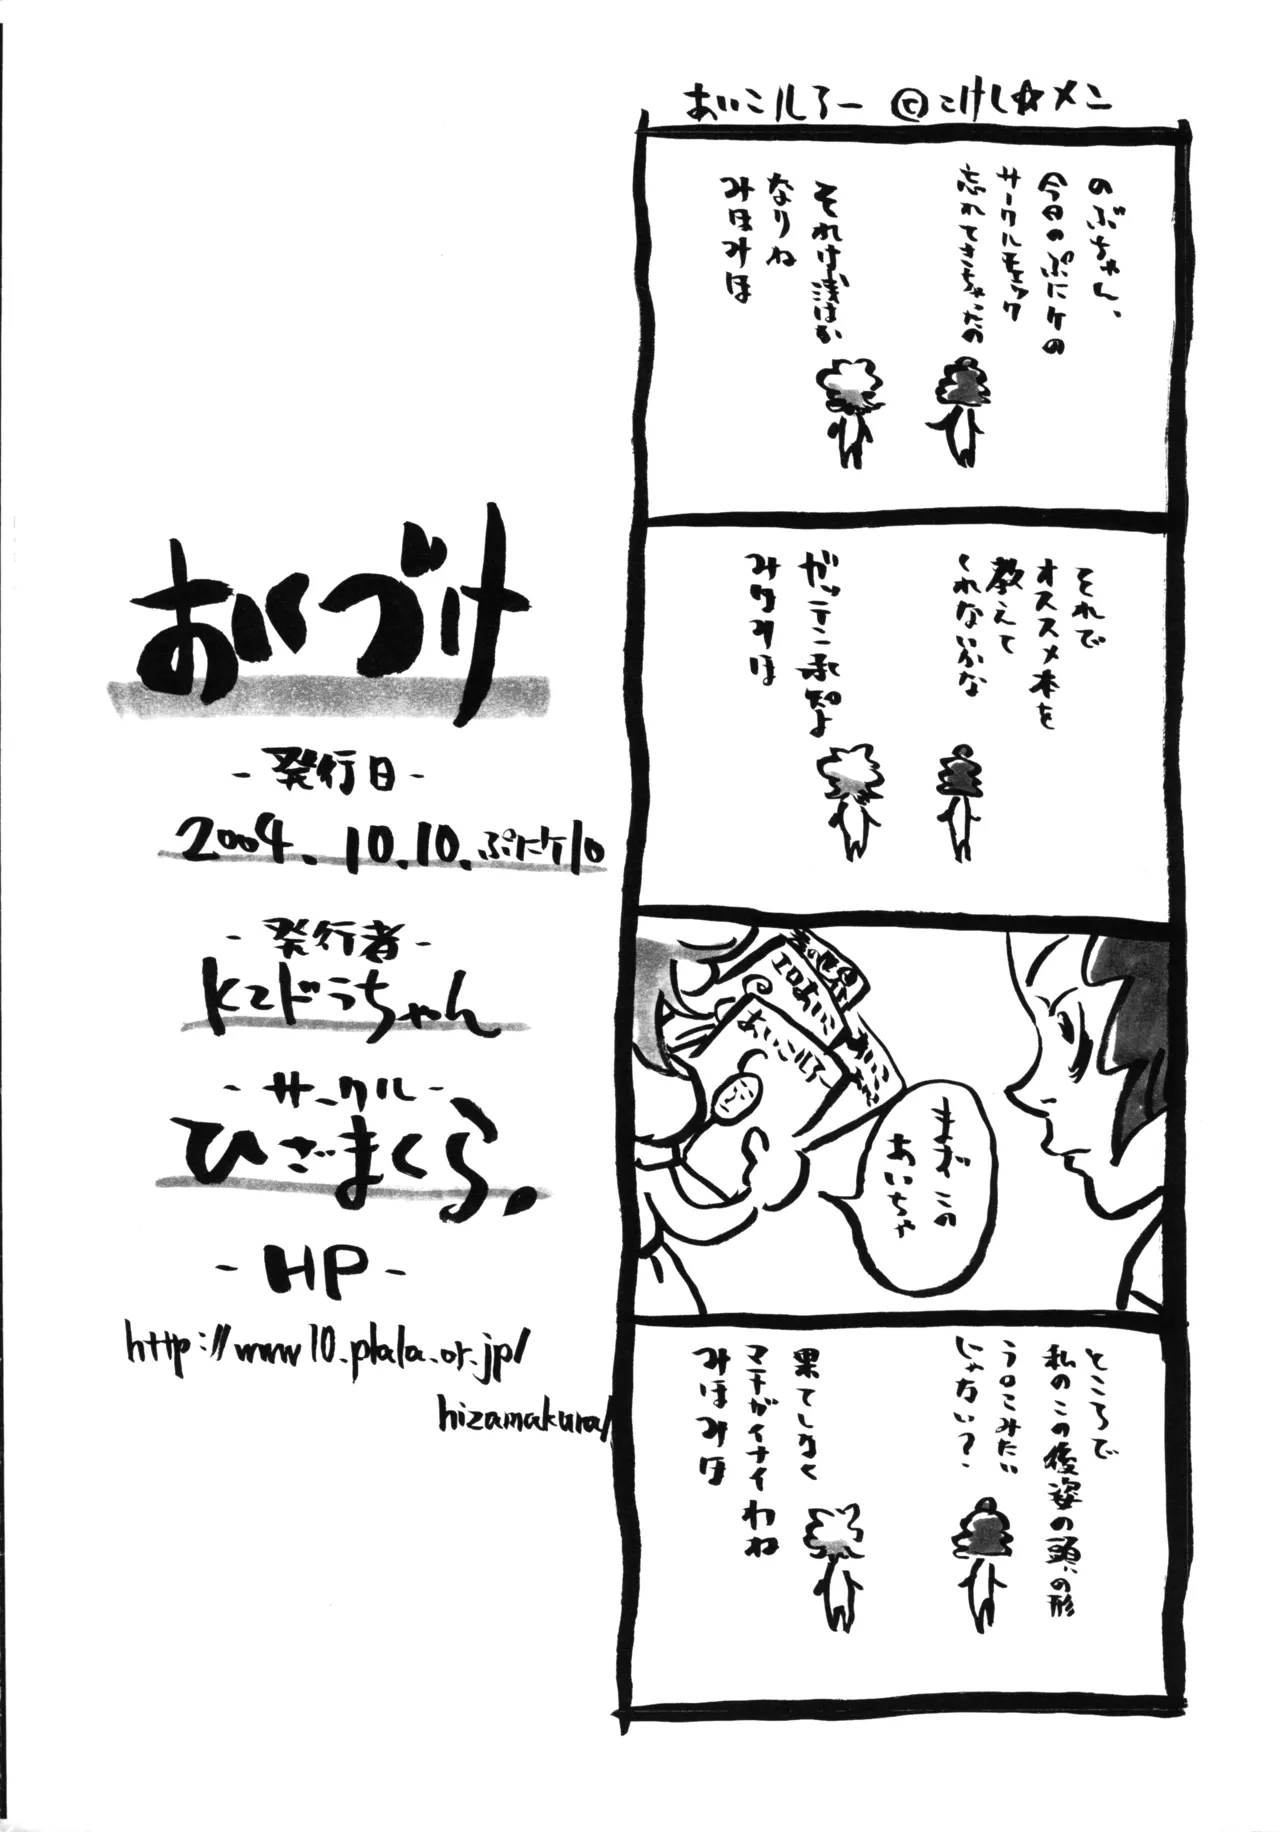 あいこルろー ©こけし☆メン
のぶちゃん、
今日のぷにケの
サークルチェック
忘れてきちゃったの
それは浅はか
なりね
みほみほ
それで
オススメ本を
教えて
くれないかな
ガッテン承知よ
みほみほ
エロあいこ
あいこルろー
まずこの
あいちゃ
ところで
私のこの後姿の頭の形
うロこみたい
じゃない?
果てしなく
マチガイナイわね
みほみほ
あいづけ
-発行日-
2004.10.10.ぷにケ10
-発行者-
K2ドラちゃん
-サークル-
ひざまくら。
-HP-
http://www10.plala.or.jp/
hizamakura/